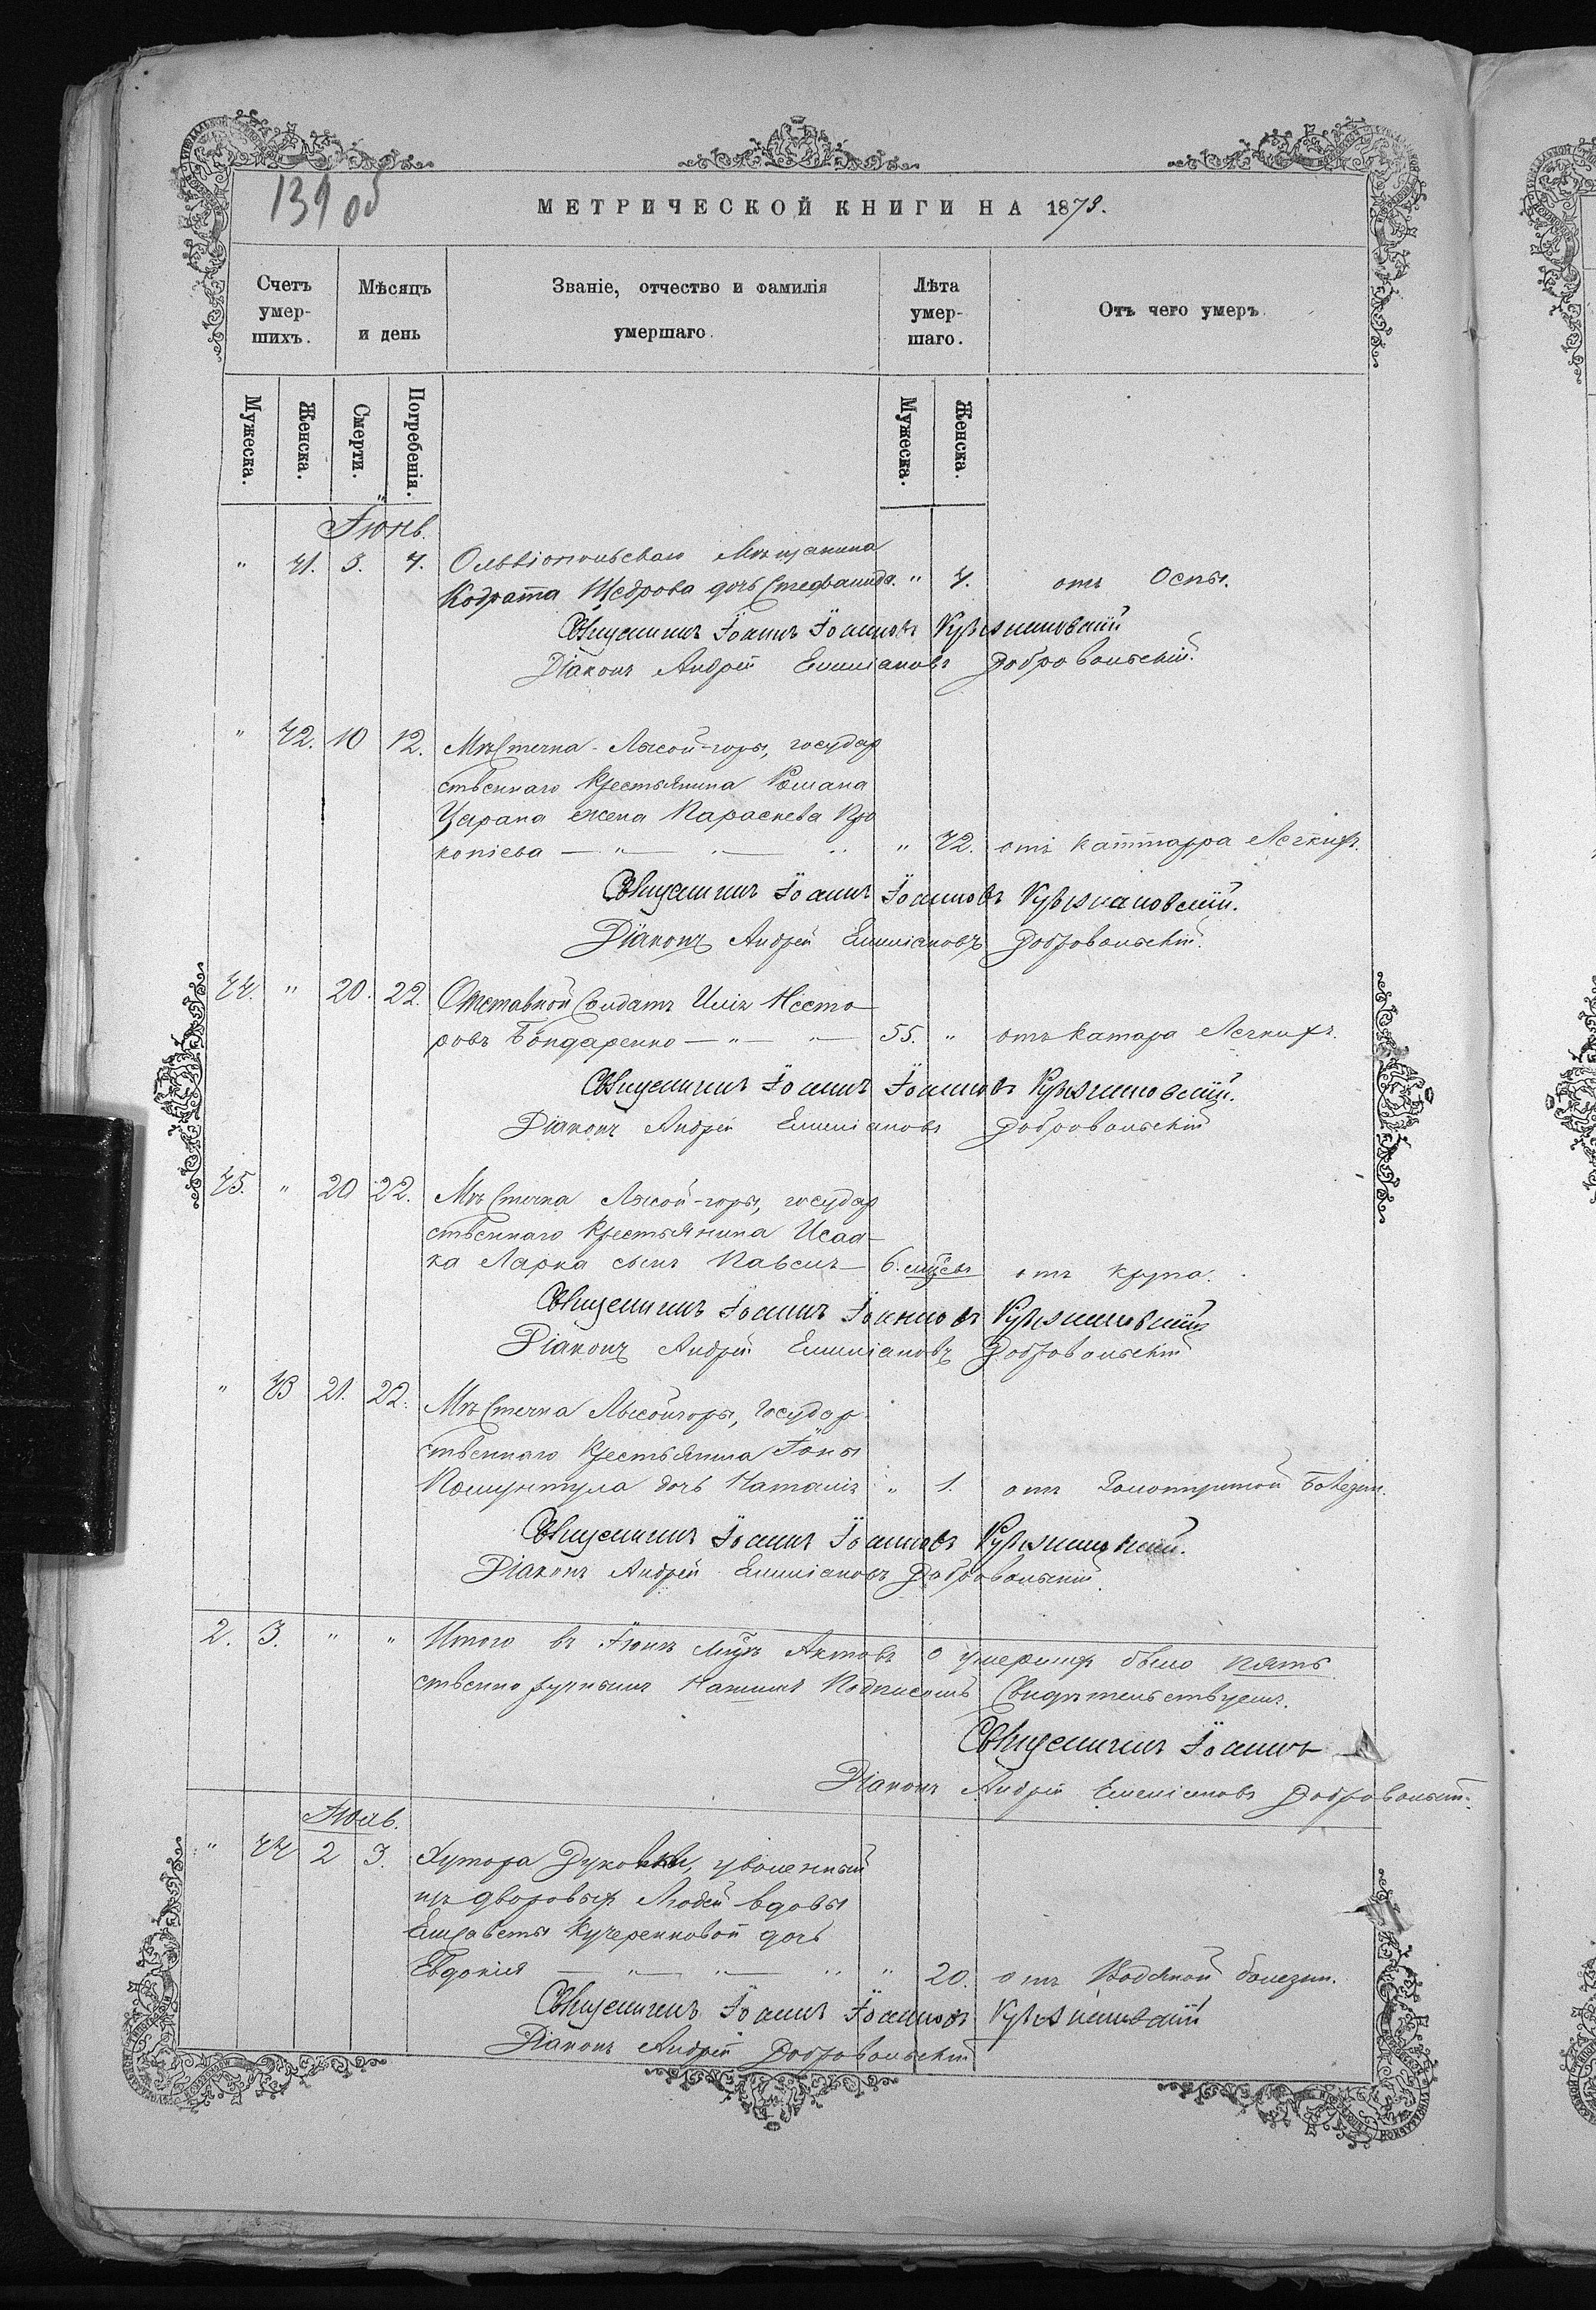 139 об
МЕТРИЧЕСКОЙ КНИГИ НА 1873.
Счетъ умер-шихъ.
Мѣсяцъ и день
Званіе, отчество и фамилія умершаго.
Лѣта умер-шаго.
Отъ чего умеръ.
Мужеска. Женска. Смерти. Погребенія. Мужеска. Женска.
Іюнь.
" 41. 3. 4. Ольвіопольскаго Мѣщанина
Кодратта Щедрова дочь Стефанида. " 4. отъ Оспы.
Священникъ Іоаннъ Іоанновъ
Діаконъ Андрей Емиліановъ Добровольскій.
" 42. 10 12. Мѣстечка Лысой-горы, государ
ственнаго Крестьянина Романа
Царана жена Параскева Про
копіева — " — " 42. отъ каттарра Легкихъ.
Священникъ Іоаннъ Іоанновъ
Діаконъ Андрей Емиліановъ Добровольскій.
44. " 20. 22. Отставной Солдатъ Илія Несто
ровъ Бондаренко — " — 55. " отъ катара Легкихъ.
Священникъ Іоаннъ Іоанновъ
Діаконъ Андрей Емиліановъ Добровольскій
45. " 20 22. Мѣстечка Лысой-горы, государ
ственнаго Крестьянина Исаа-
ка Ларка сынъ Павелъ — 6. мѣсц. отъ крупа.
Священникъ Іоаннъ Іоанновъ
Діаконъ Андрей Емиліановъ Добровольскій
" 43 21. 22. Мѣстечка Лысойгоры, Государ-
ственнаго Крестьянина Іоны
дочь Наталія " 1. отъ болезни.
Священникъ Іоаннъ Іоанновъ
Діаконъ Андрей Емиліановъ Добровольскій.
2. 3. " " Итого въ Іюнѣ Актовъ о умершихъ было пять
ственноручнымъ Нашимъ Подписомъ Свидѣтельствуемъ.
Священникъ Іоаннъ
Діаконъ Андрей Емиліановъ Добровольскій.
Іюль.
" 44 2 3. Хутора уволенный
изъ дворовыхъ Людей вдовы
Елисаветы Кучеренковой дочь
Евдокія — " — " — " 20. отъ Водяной болезни.
Священникъ Іоаннъ Іоанновъ
Діаконъ Андрей Добровольскій